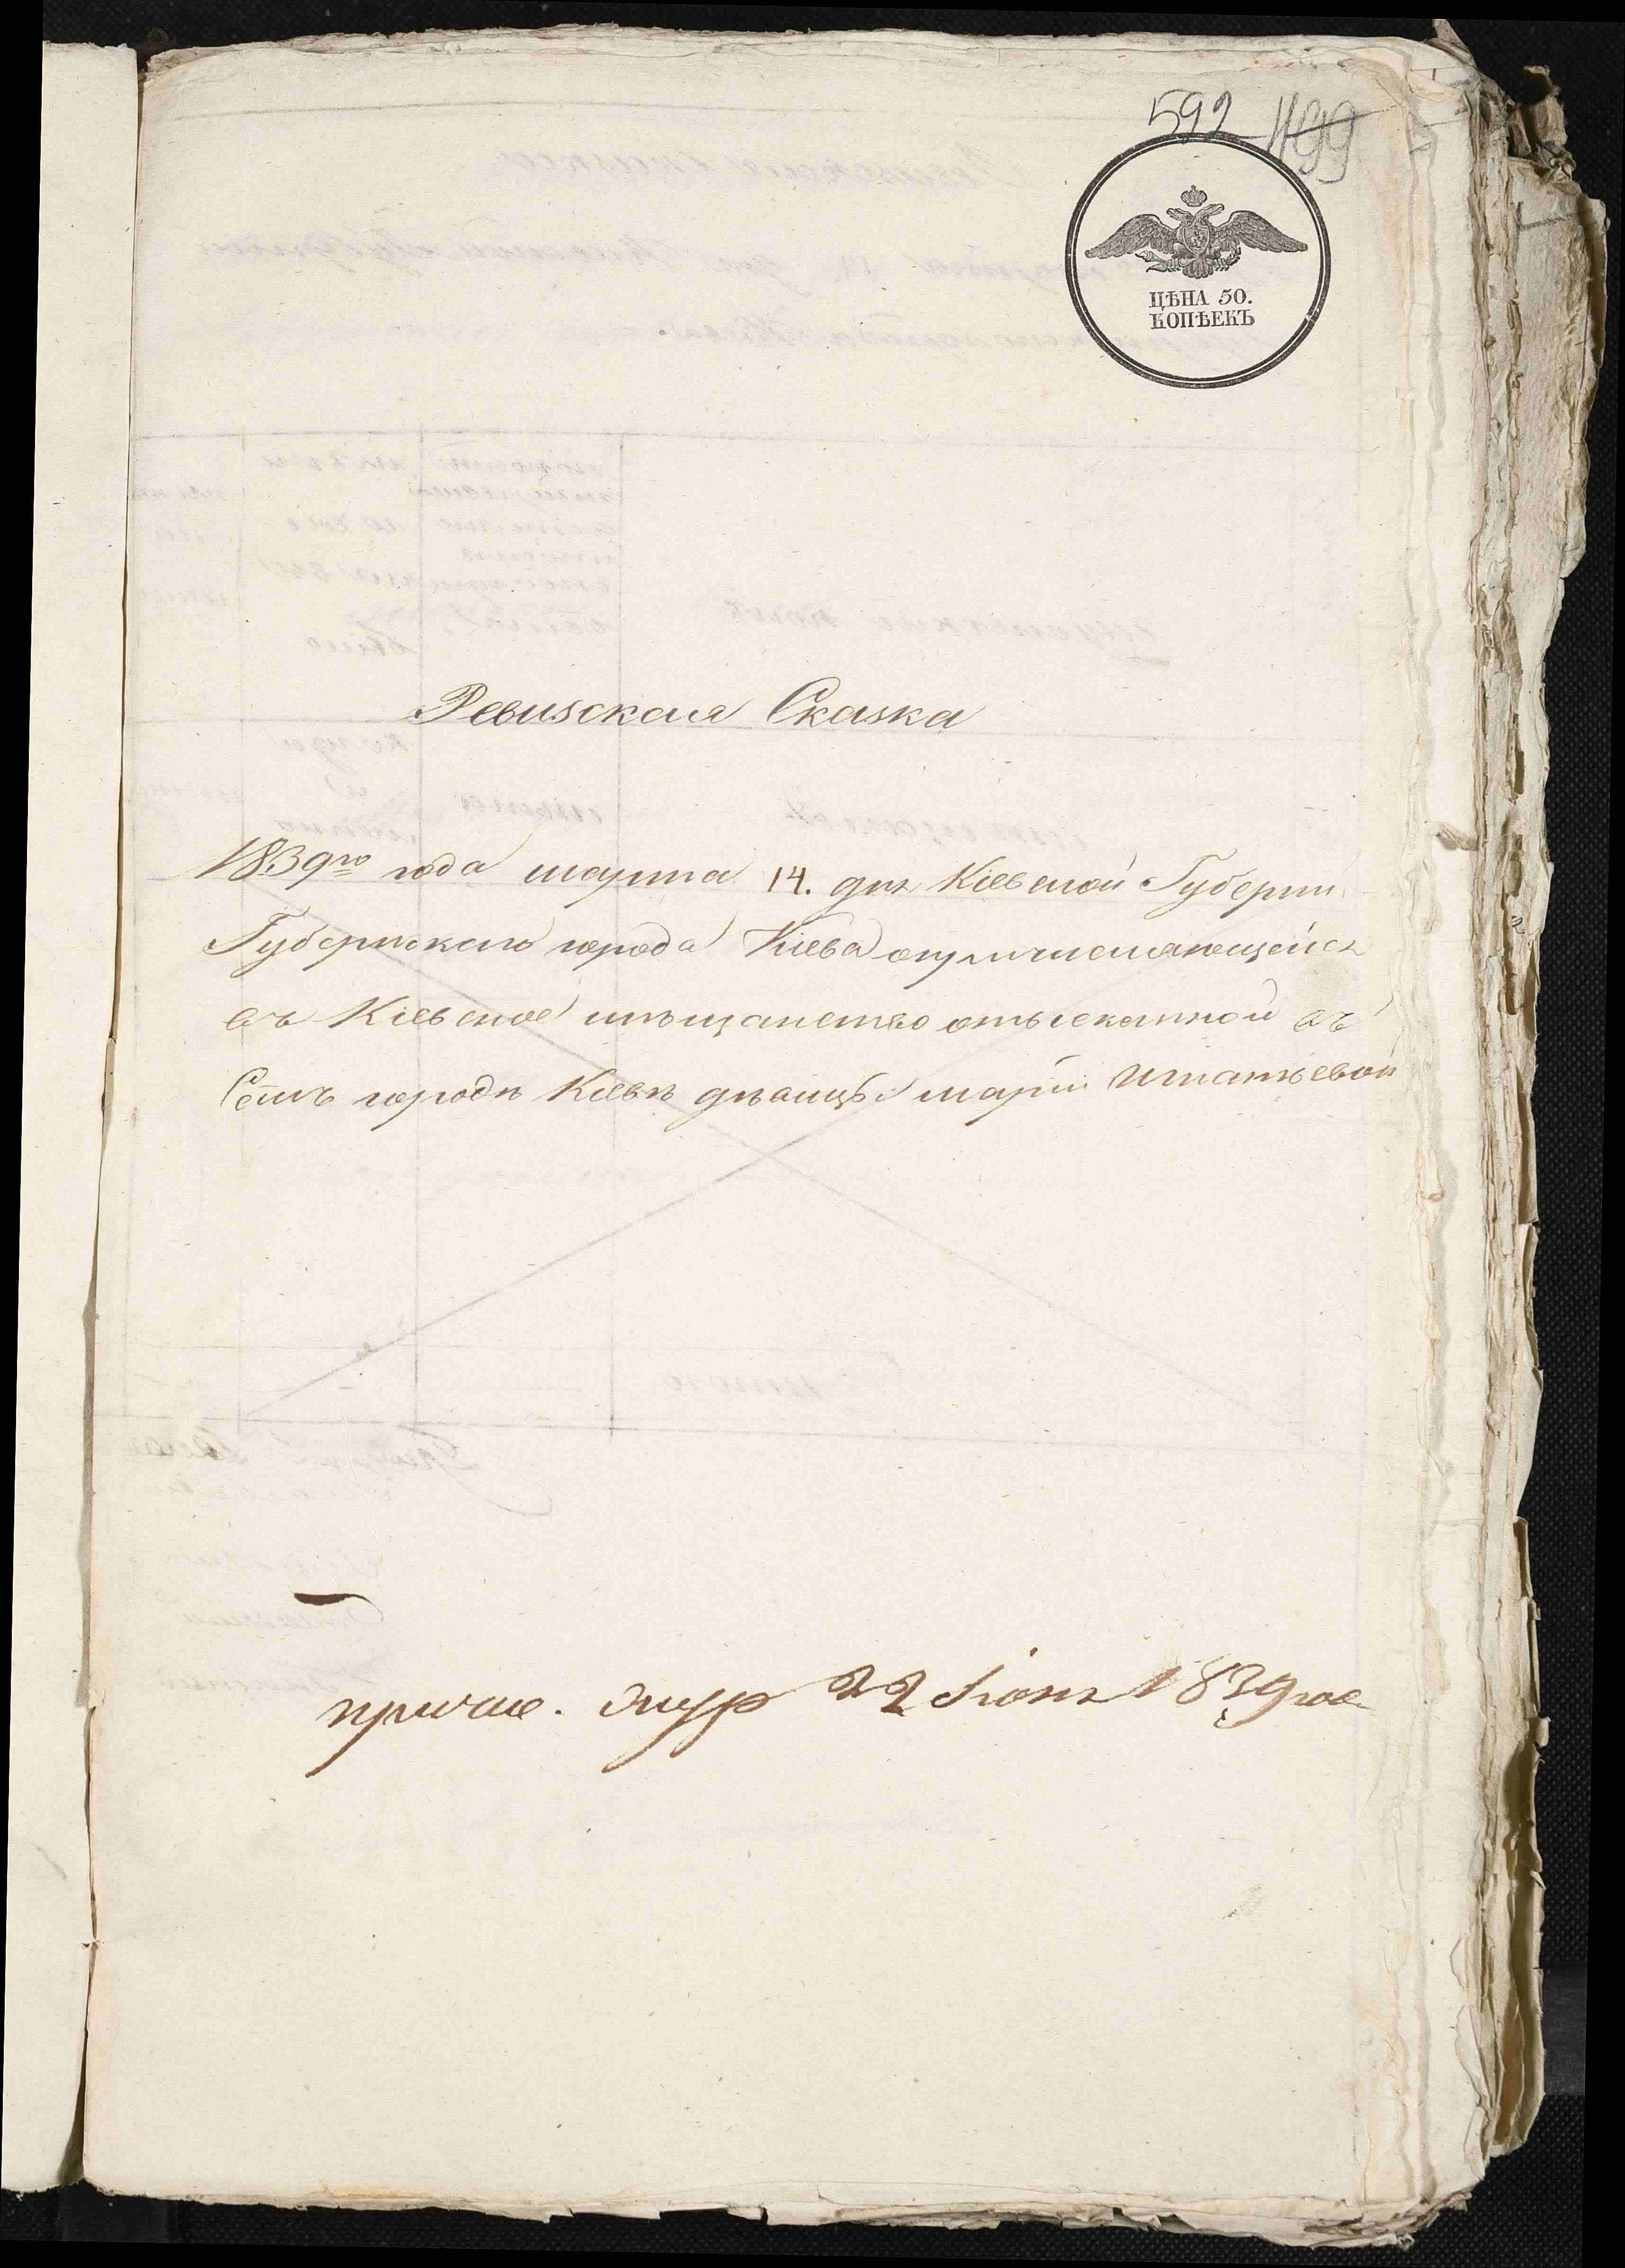 592 1199
ЦѢНА 50.
КОПѢЕКЪ
Ревизская Сказка
1839го года марта 14. дня Кіевской Губерніи
Губернскаго города Кіева о причисляющейся
въ Кіевское мѣщанство отысканной въ
Семъ городѣ Кіевѣ дѣвицы маріи Игнатьевой
22 Іюня 1839 год